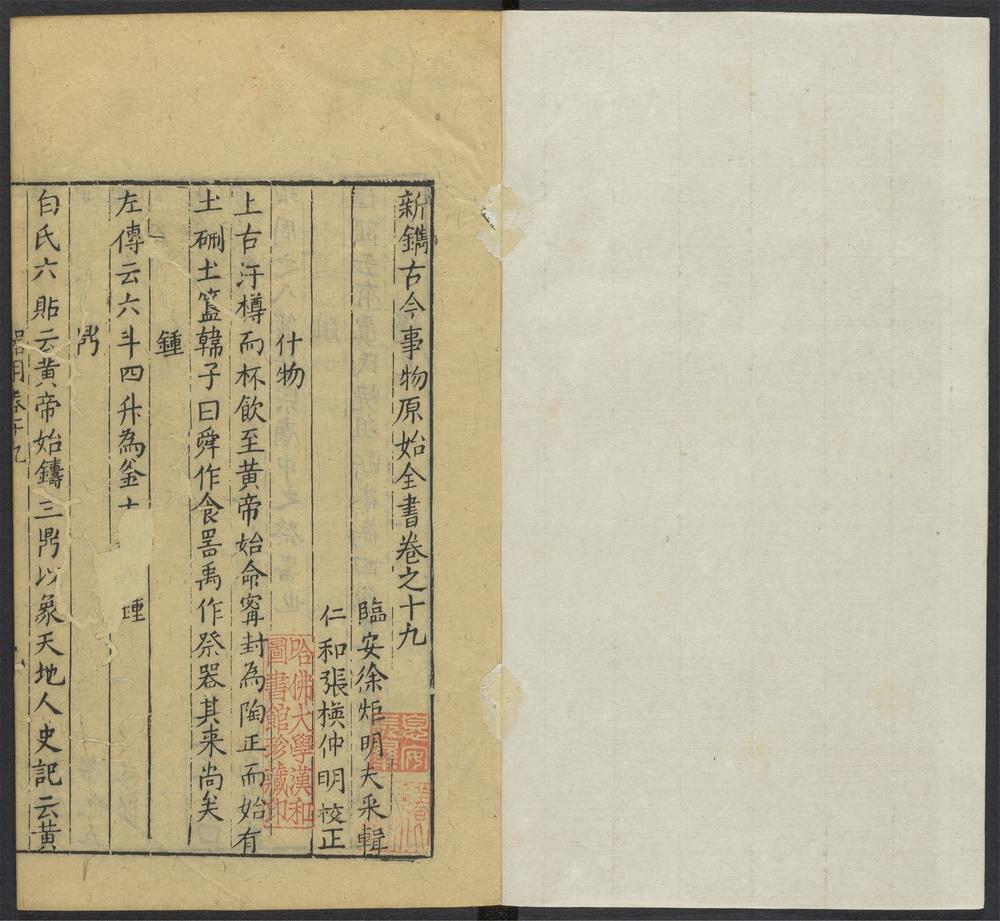 新鐫古今事物原始全書卷之十九
臨安徐炬明夫采輯
仁和張𣚴仲明校正
什物
上古汙樽而杯飲至黄帝始命甯封為陶正而始有
土硎土簋韓子曰舜作食噐禹作祭器其来尚矣
鍾
左傳云六斗四升為釜十
鼎
白氏六貼云黄帝始鑄三鼎以象天地人史記云黄
器用卷十九
哈佛大學漢和
圖書館珍藏印